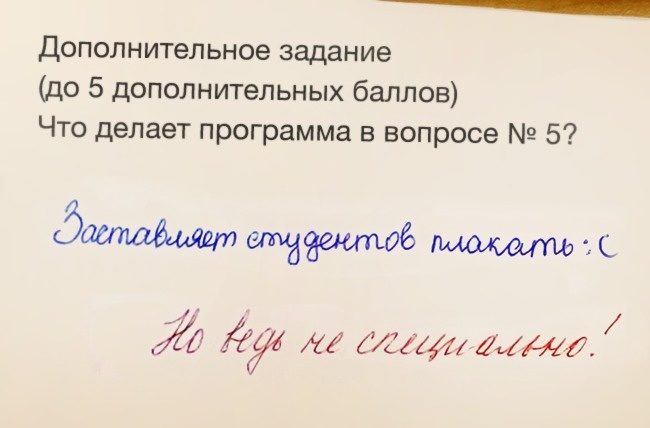 Дополнительное задание
(до 5 дополнительных баллов)
Что делает программа в вопросе № 5?
Заставляет студентов плакать :(
Но ведь не специально!